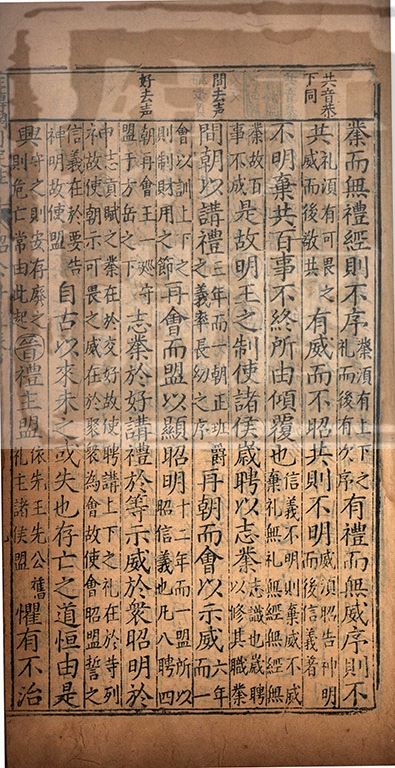 共音恭
下同
間去声
好去声
業而無禮經則不序業須有上下之礼而後有次序有禮而無威序則不
共礼須有可畏之威而後敬共有威而不昭共則不明威須昭告神明而後信義著
不明棄共百事不終所由傾覆也信義不明則棄威不威棄礼無礼無經無經無
業故百事不成是故明王之制使諸侯歲聘以志業志識也歲聘以修其職業
間朝以講禮三年而一朝正班爵之義率長幼之序再朝而會以示威六年而一
會以訓上下之則制財用之節再會而盟以顯昭明十二年而一盟所以昭信義也凡八聘四
朝再會王一巡守盟于方岳之下志業於好講禮於等示威於衆昭明於
神志貢賦之業在於交好故使聘講上下之礼在於等列故使朝示可畏之威在於聚衆為會故使會昭盟誓之
信義在於要告神明故使盟自古以來未之或失也存亡之道恒由是
興守之則安存廢之則危亡常由此起晉禮主盟依先王先公舊礼主諸侯盟懼有不治